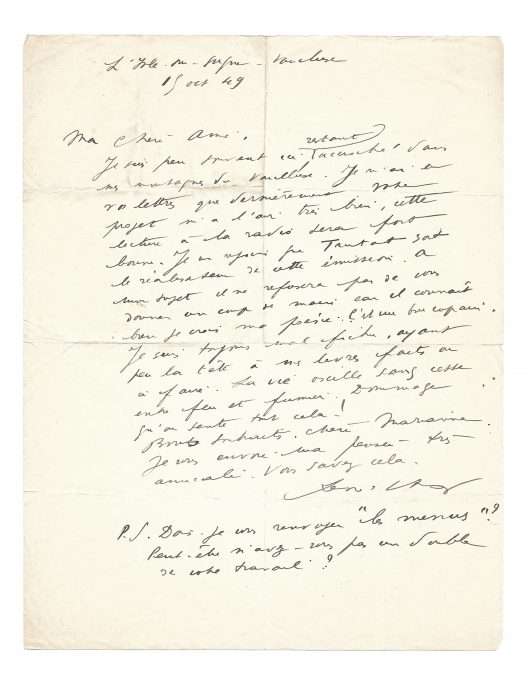 L'Isle-sur-Sorgue - Vaucluse
15 oct 49
Ma chère Amie,
restant
Je suis peu souvent ici, "accroché" dans
mes montagnes du Vaucluse. Je n'ai eu
vos lettres que dernièrement. Votre
projet m'a l'air très bien, cette
lecture à la radio sera fort
bonne. Je me réjouis que soit
le réalisateur de cette émission. A
mon sujet il ne refusera pas de vous
donner un coup de main car il connaît
bien je crois ma poésie. C'est un bon copain.
Je suis toujours mal fichu, ayant
peu la tête à mes livres faits ou
à faire. La vie oscille sans cesse
entre feu et fumier. Dommage
qu'on sente tout cela!
Bonts souhaits, chère Marianne.
Je vous envoie ma pensée très
amicale. Vous savez cela.
René Char
P.S. Dois-je vous renvoyer "les menus"?
Peut-être n'avez-vous pas un double
de votre travail?